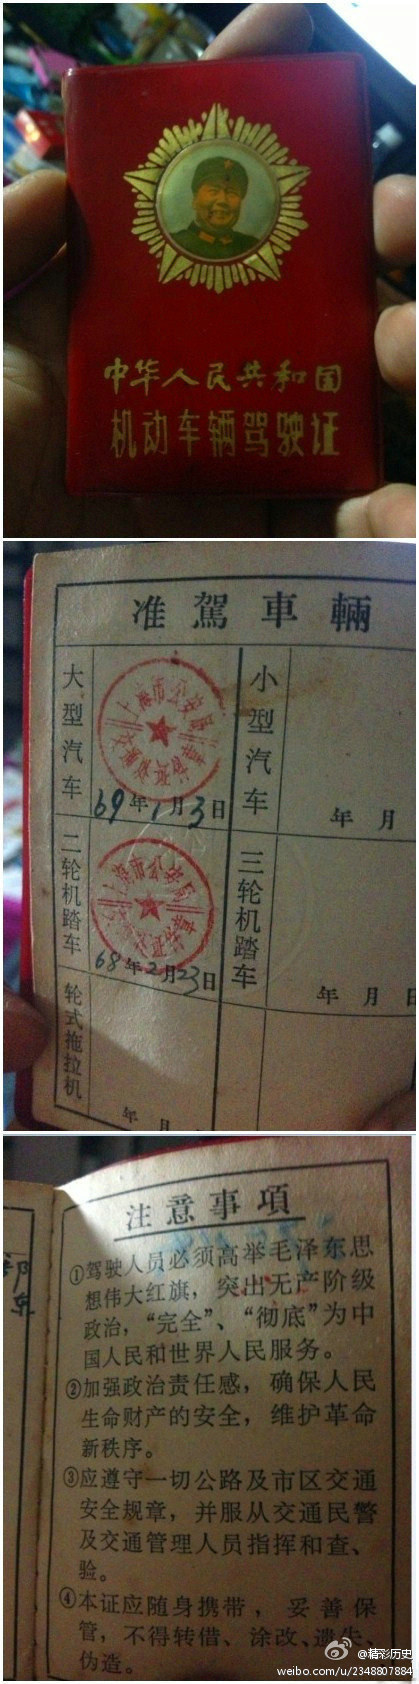 中华人民共和国
机动车辆驾驶证
准駕車輛
大型汽车
上海市公安局
69年1月3日
小型汽车
年 月
二轮机踏车
上海市公安局
68年2月23日
三轮机踏车
年 月 日
轮式拖拉机
年 月
注意事項
①驾驶人员必须高举毛泽东思
想伟大红旗，突出无产阶级
政治，“完全”、“彻底”为中
国人民和世界人民服务。
②加强政治责任感，确保人民
生命财产的安全，维护革命
新秩序。
③应遵守一切公路及市区交通
安全规章，并服从交通民警
及交通管理人员指挥和查、
验。
④本证应随身携带，妥善保
管，不得转借、涂改、遗失、
伪造。
@精彩历史
weibo.com/u/2348807884